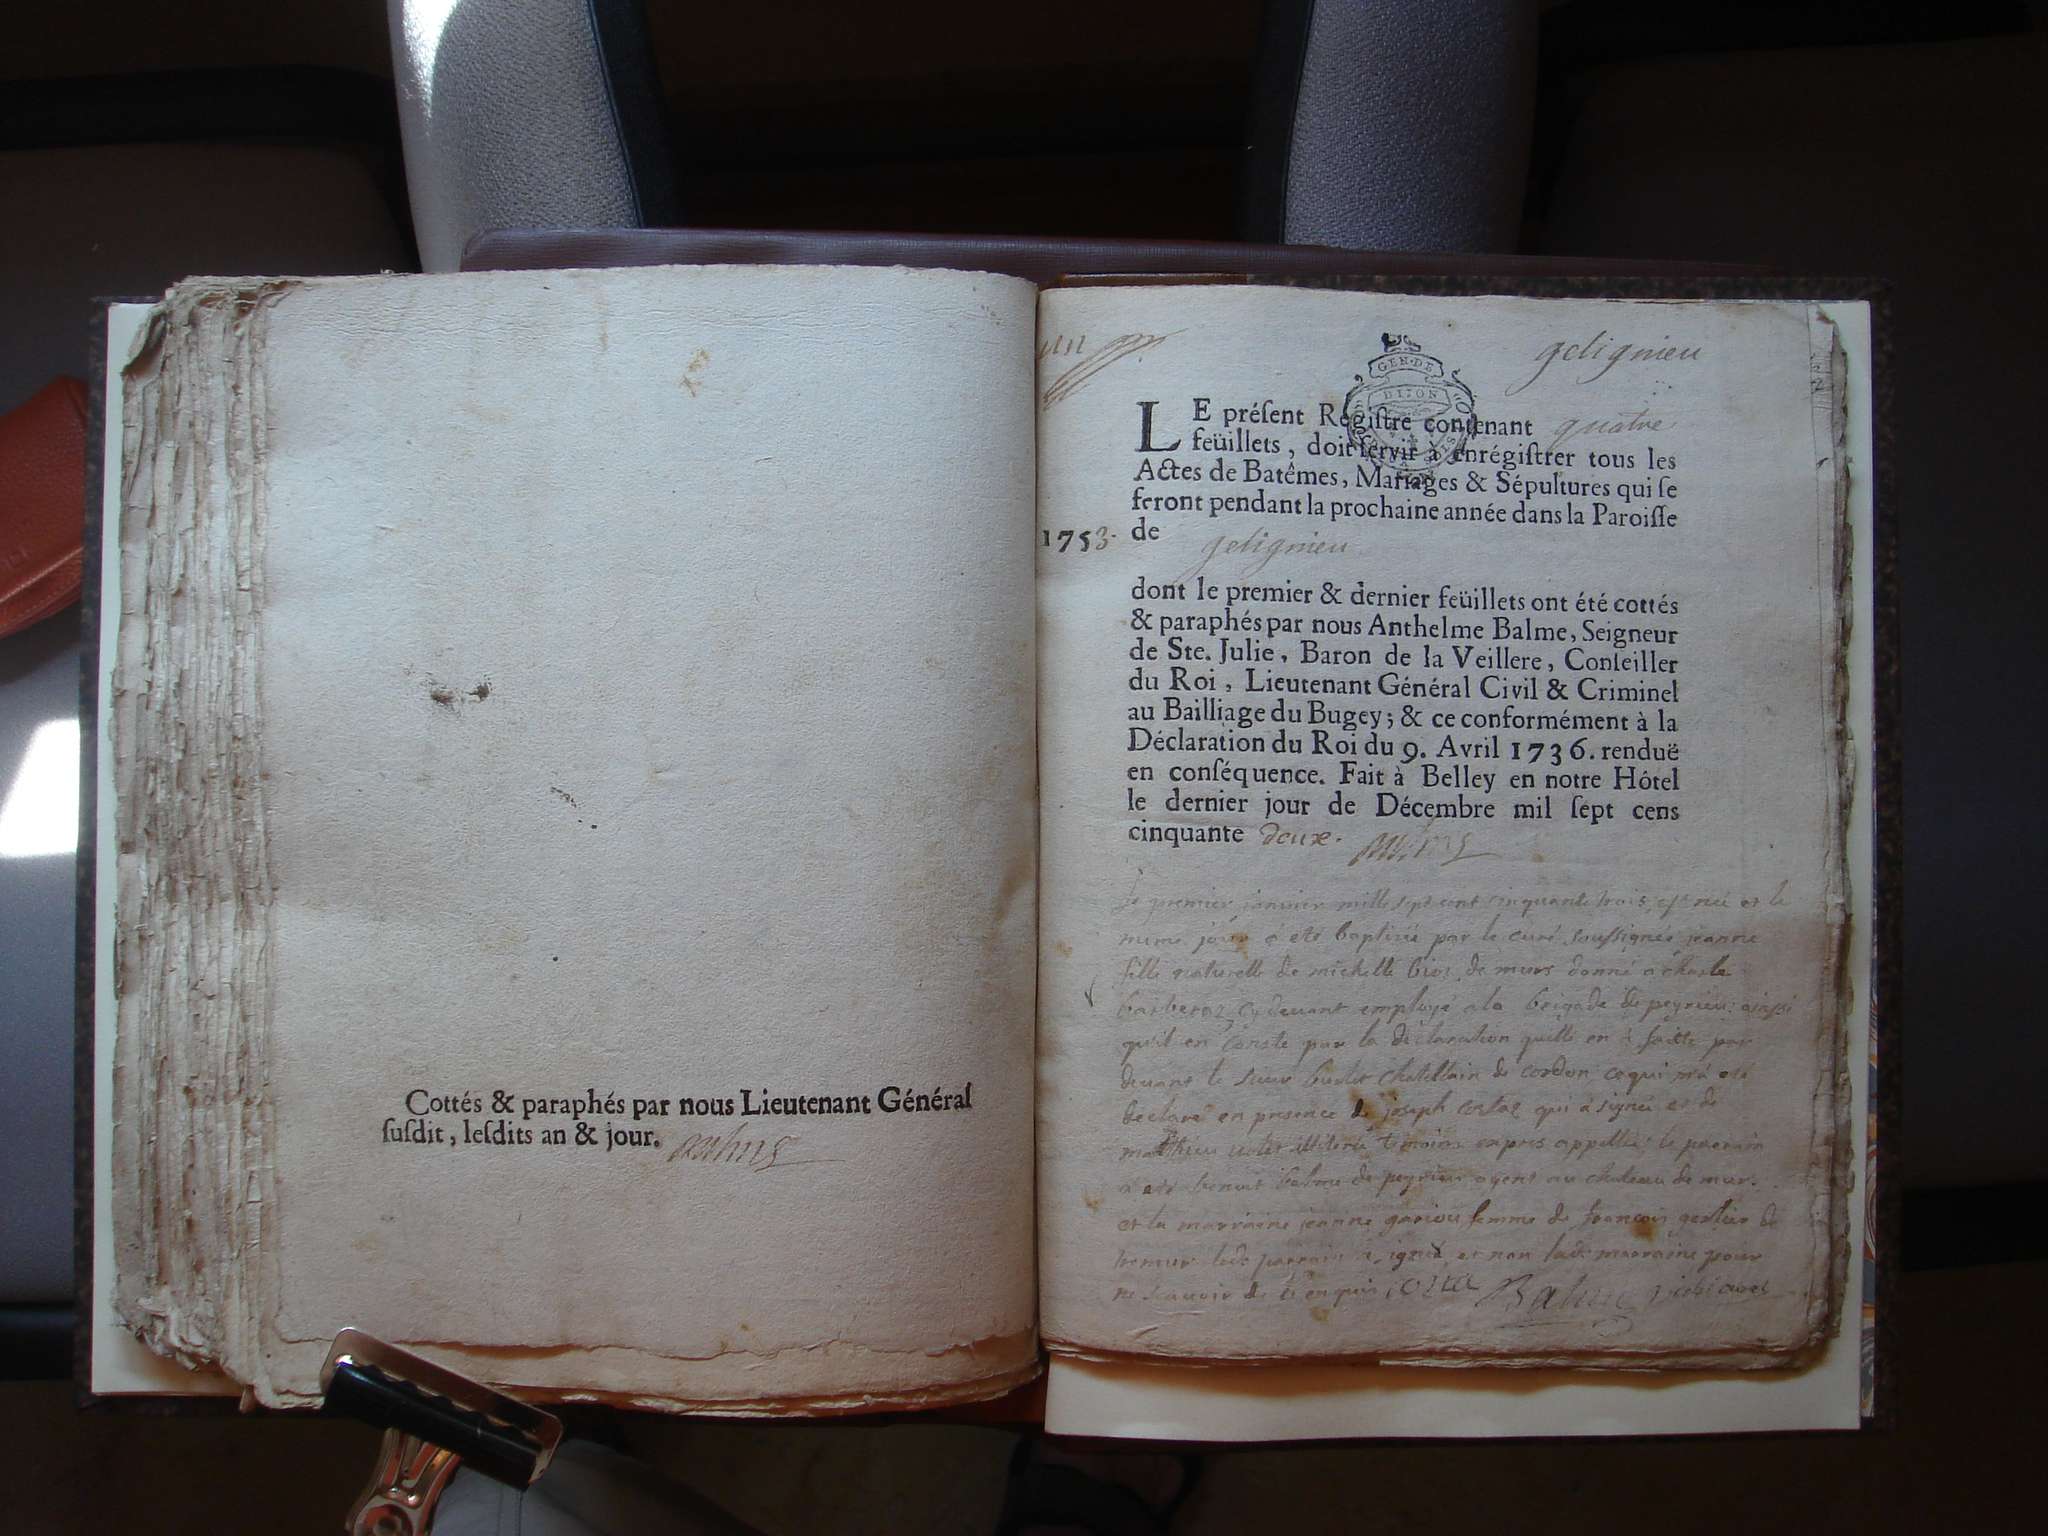 Cottés & paraphés par nous Lieutenant Général
ſuſdit, leſdits an & jour.
un
gelignieu
GEN·DE
DIJON
LE préſent Regiſtre contenant quatre
feüillets, doit ſervir à enrégiſtrer tous les
Actes de Batêmes, Mariages & Sépultures qui ſe
feront pendant la prochaine année dans la Paroiſſe
1753. de gelignieu
dont le premier & dernier feüillets ont été cottés
& paraphés par nous Anthelme Balme, Seigneur
de Ste. Julie, Baron de la Veillere, Conſeiller
du Roi, Lieutenant Général Civil & Criminel
au Bailliage du Bugey; & ce conformément à la
Déclaration du Roi du 9. Avril 1736. renduë
en conſéquence. Fait à Belley en notre Hôtel
le dernier jour de Décembre mil ſept cens
cinquante deux.
Le premier janvier mille sept cent cinquante trois est née et le
meme jour a été baptisée par le curé soussignée jeanne
fille naturelle de michelle de murs donné a charle
barberoz cy devant employé a la brigade de peyrieu ainssi
qu'il en conste par la déclaration quelle en a faitte par
devant le sieur chatellain de cordon ce qui m'a eté
declaré en presence de joseph costaz qui a signé et de
mathieu illiteré temoins enpres appellés le parrain
a eté benoit balme de peyrieu agent au chateau de murs
et la marraine jeanne gariou femme de francois gerlier de
murs ledt parrain a signé et non ladt marraine pour
ne scavoir de ce enquis costa Balme